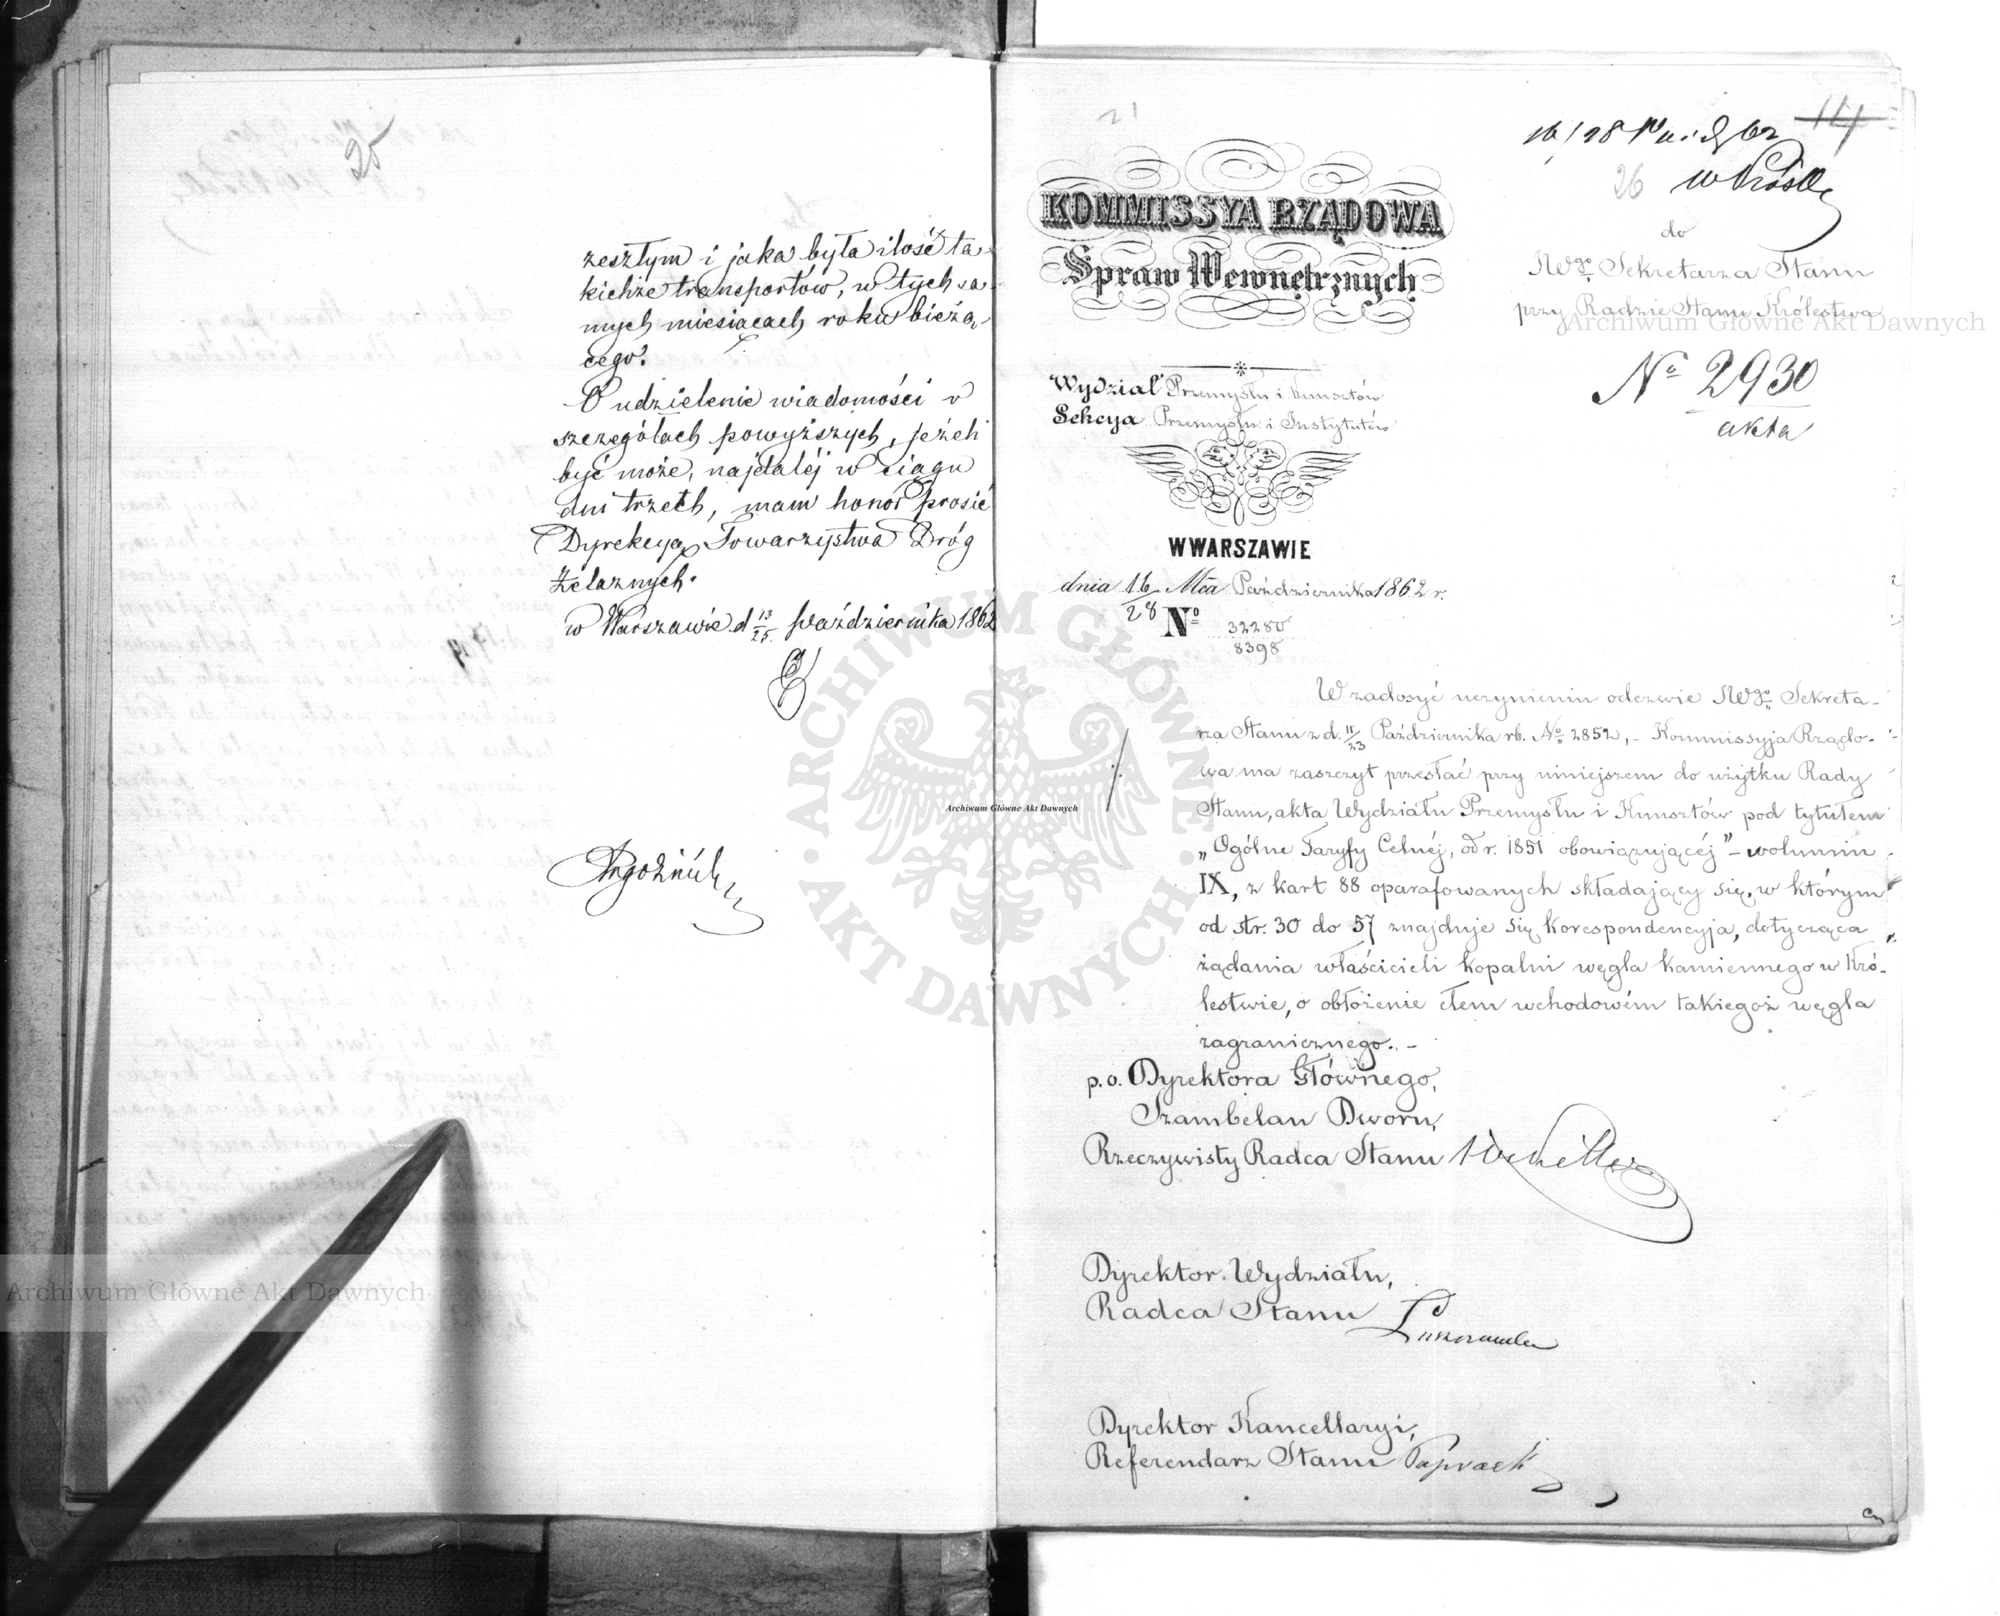 25
zeszłym i jaka była ilość ta-
kichże transportów, w tych sa-
mych miesiącach roku bieżą-
cego.
O udzielenie wiadomości w
szczegółach powyższych, jeżeli
być może, najdalej w ciągu
dni trzech, mam honor prosić
Dyrekcyą Towarzystwa Dróg
Żelaznych.
w Warszawie d 13/25 Października 1862
21
14
16/28 Paźdz 62
26
do
JWgo Sekretarza Stanu
przy Radzie Stanu Królestwa
No 2930
akta
KOMMISSYA RZĄDOWA
Spraw Wewnętrznych
Wydział Przemysłu i Kunsztów
Sekcya Przemysłu i Instytutów
W WARSZAWIE
dnia 16/28 Mca Października 1862 r.
No 32280
8398
W zadosyć uczynieniu odezwie JWgo Sekreta-
rza Stanu z d. 11/23 Października rb. No 2852, - Kommissyja Rządo-
wa ma zaszczyt przesłać przy niniejszem do użytku Rady
Stanu, akta Wydziału Przemysłu i Kunsztów pod tytułem
„Ogólne Taryfy Celnéj, od r. 1851 obowiązującéj" - wolumin
IX, z kart 88 oparafowanych składający się, w którym
od str. 30 do 57 znajduje się korespondencyja, dotycząca
żądania właścicieli kopalni węgla kamiennego w Kró-
lestwie, o obłożenie cłem wchodowém takiegoż węgla
zagranicznego. -
p.o. Dyrektora Głównego,
Szambelan Dworu,
Rzeczywisty Radca Stanu
Dyrektor Wydziału,
Radca Stanu
Dyrektor Kancellaryi,
Referendarz Stanu
Archiwum Główne Akt Dawnych
Archiwum Główne Akt Dawnych
Archiwum Główne Akt Dawnych
ARCHIWUM GŁÓWNE
AKT DAWNYCH